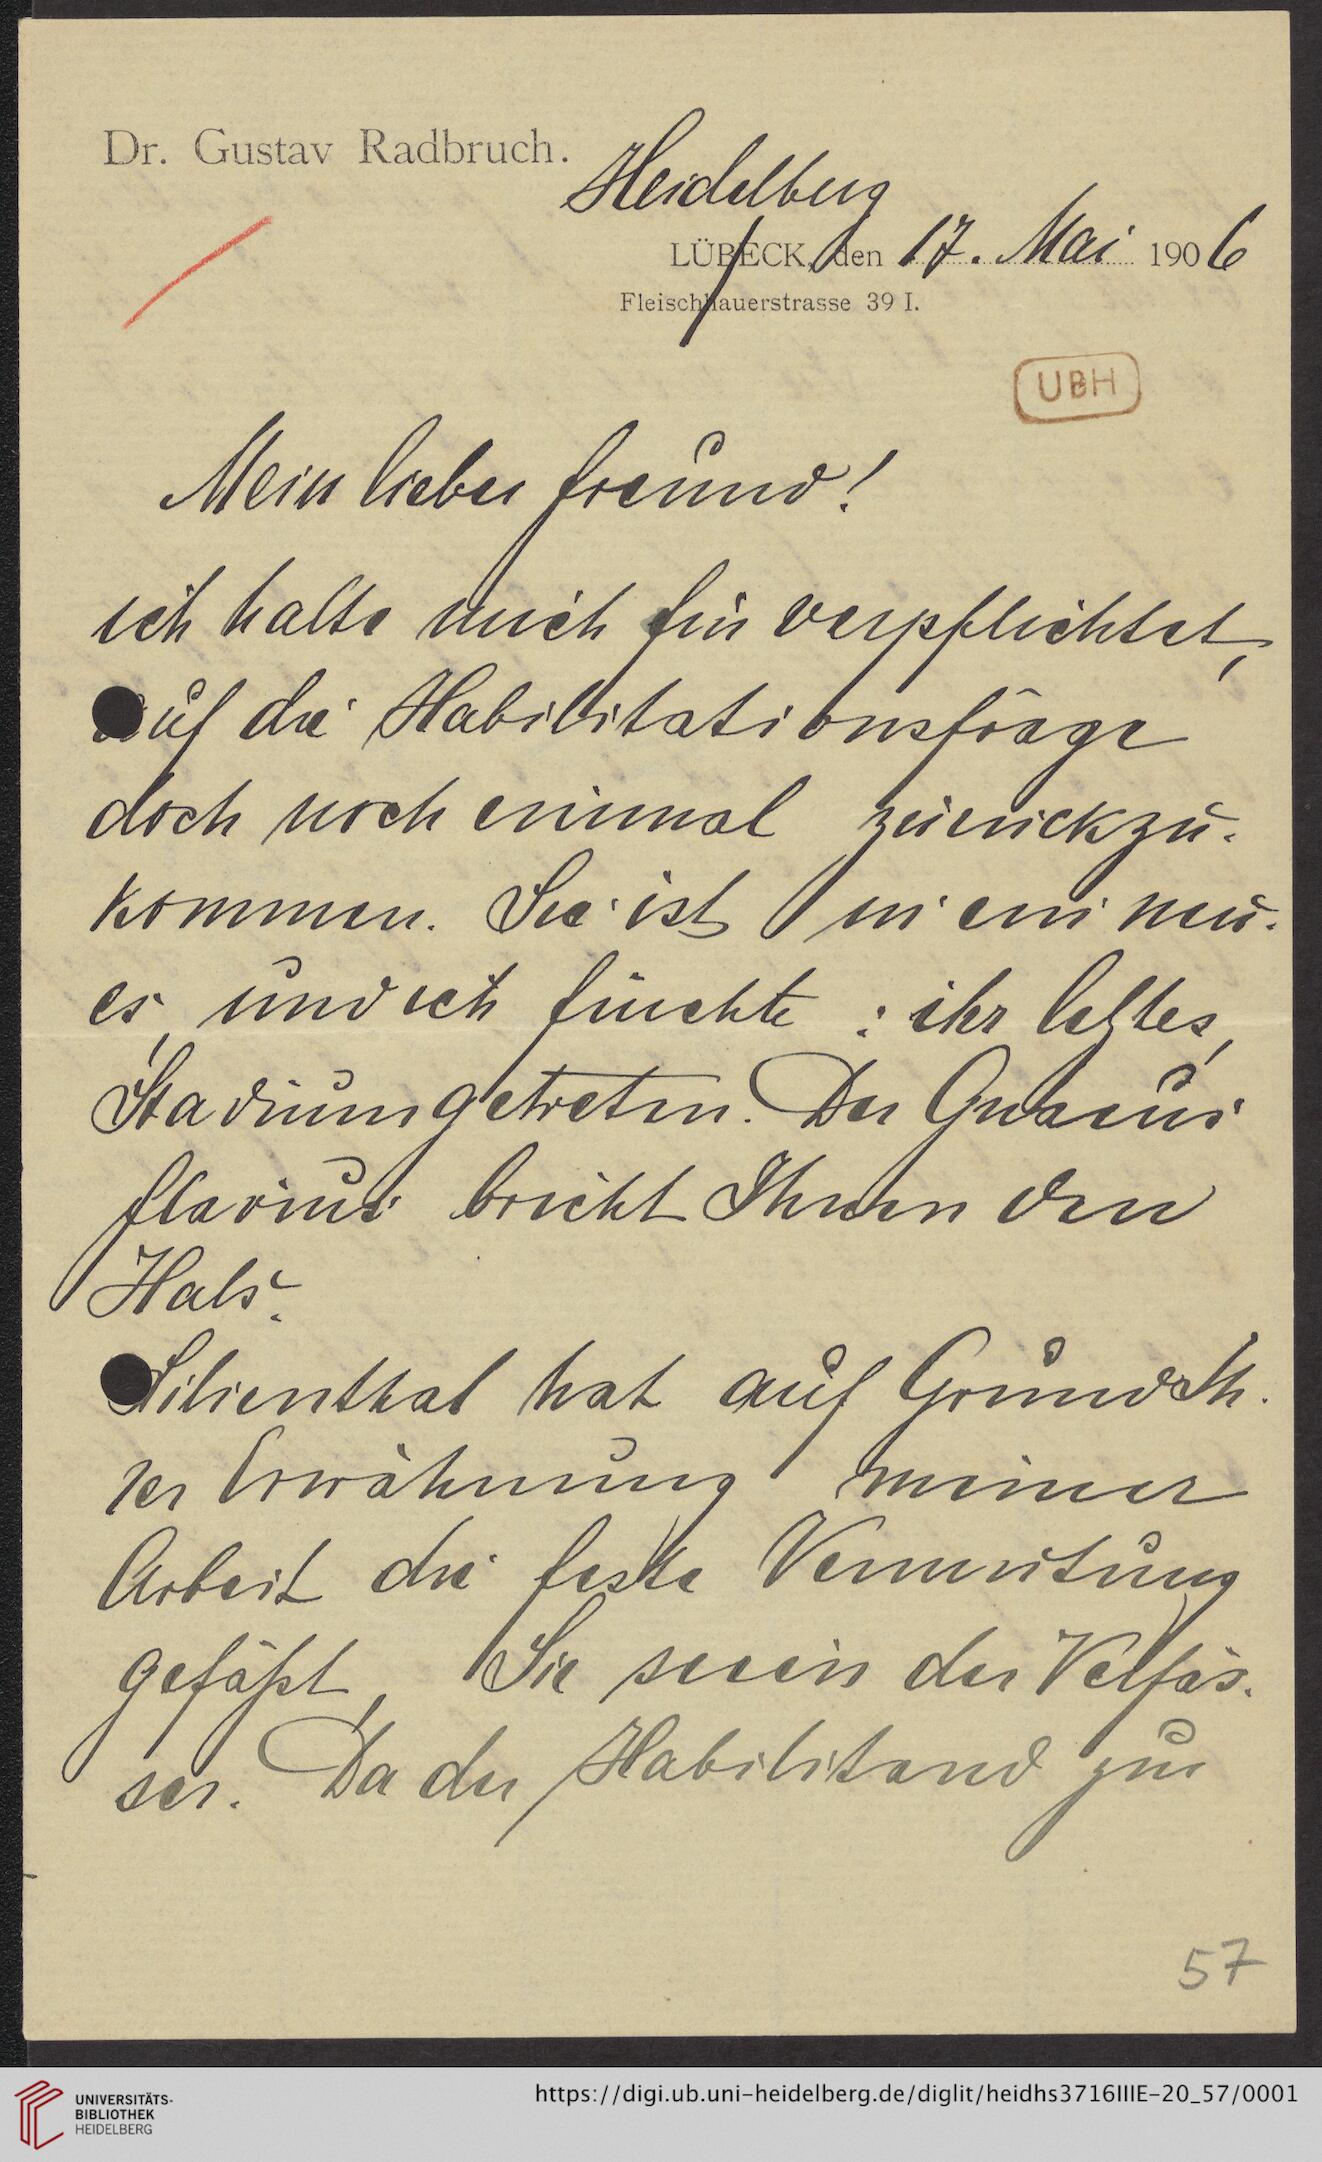 Dr. Gustav Radbruch.
Heidelberg
LÜBECK, den 17. Mai 1906
Fleischhauerstrasse 39 I.
UBH
Mein lieber Freund!
ich halte mich für verpflichtet,
auf die Habilitationsfrage
doch noch einmal zurückzu-
kommen. Sie ist in ein neu-
es, und ich fürchte: ihr letztes,
Stadium getreten. Der Gnaeus
Flavius bricht Ihnen den
Hals.
Lilienthal hat auf Grund Ih-
rer Erwähnung meiner
Arbeit die feste Vermutung
gefaßt, Sie seien der Verfas-
ser. Da der Habilitand zur
57
UNIVERSITÄTS-
BIBLIOTHEK
HEIDELBERG
https://digi.ub.uni-heidelberg.de/diglit/heidhs3716IIIE-20_57/0001